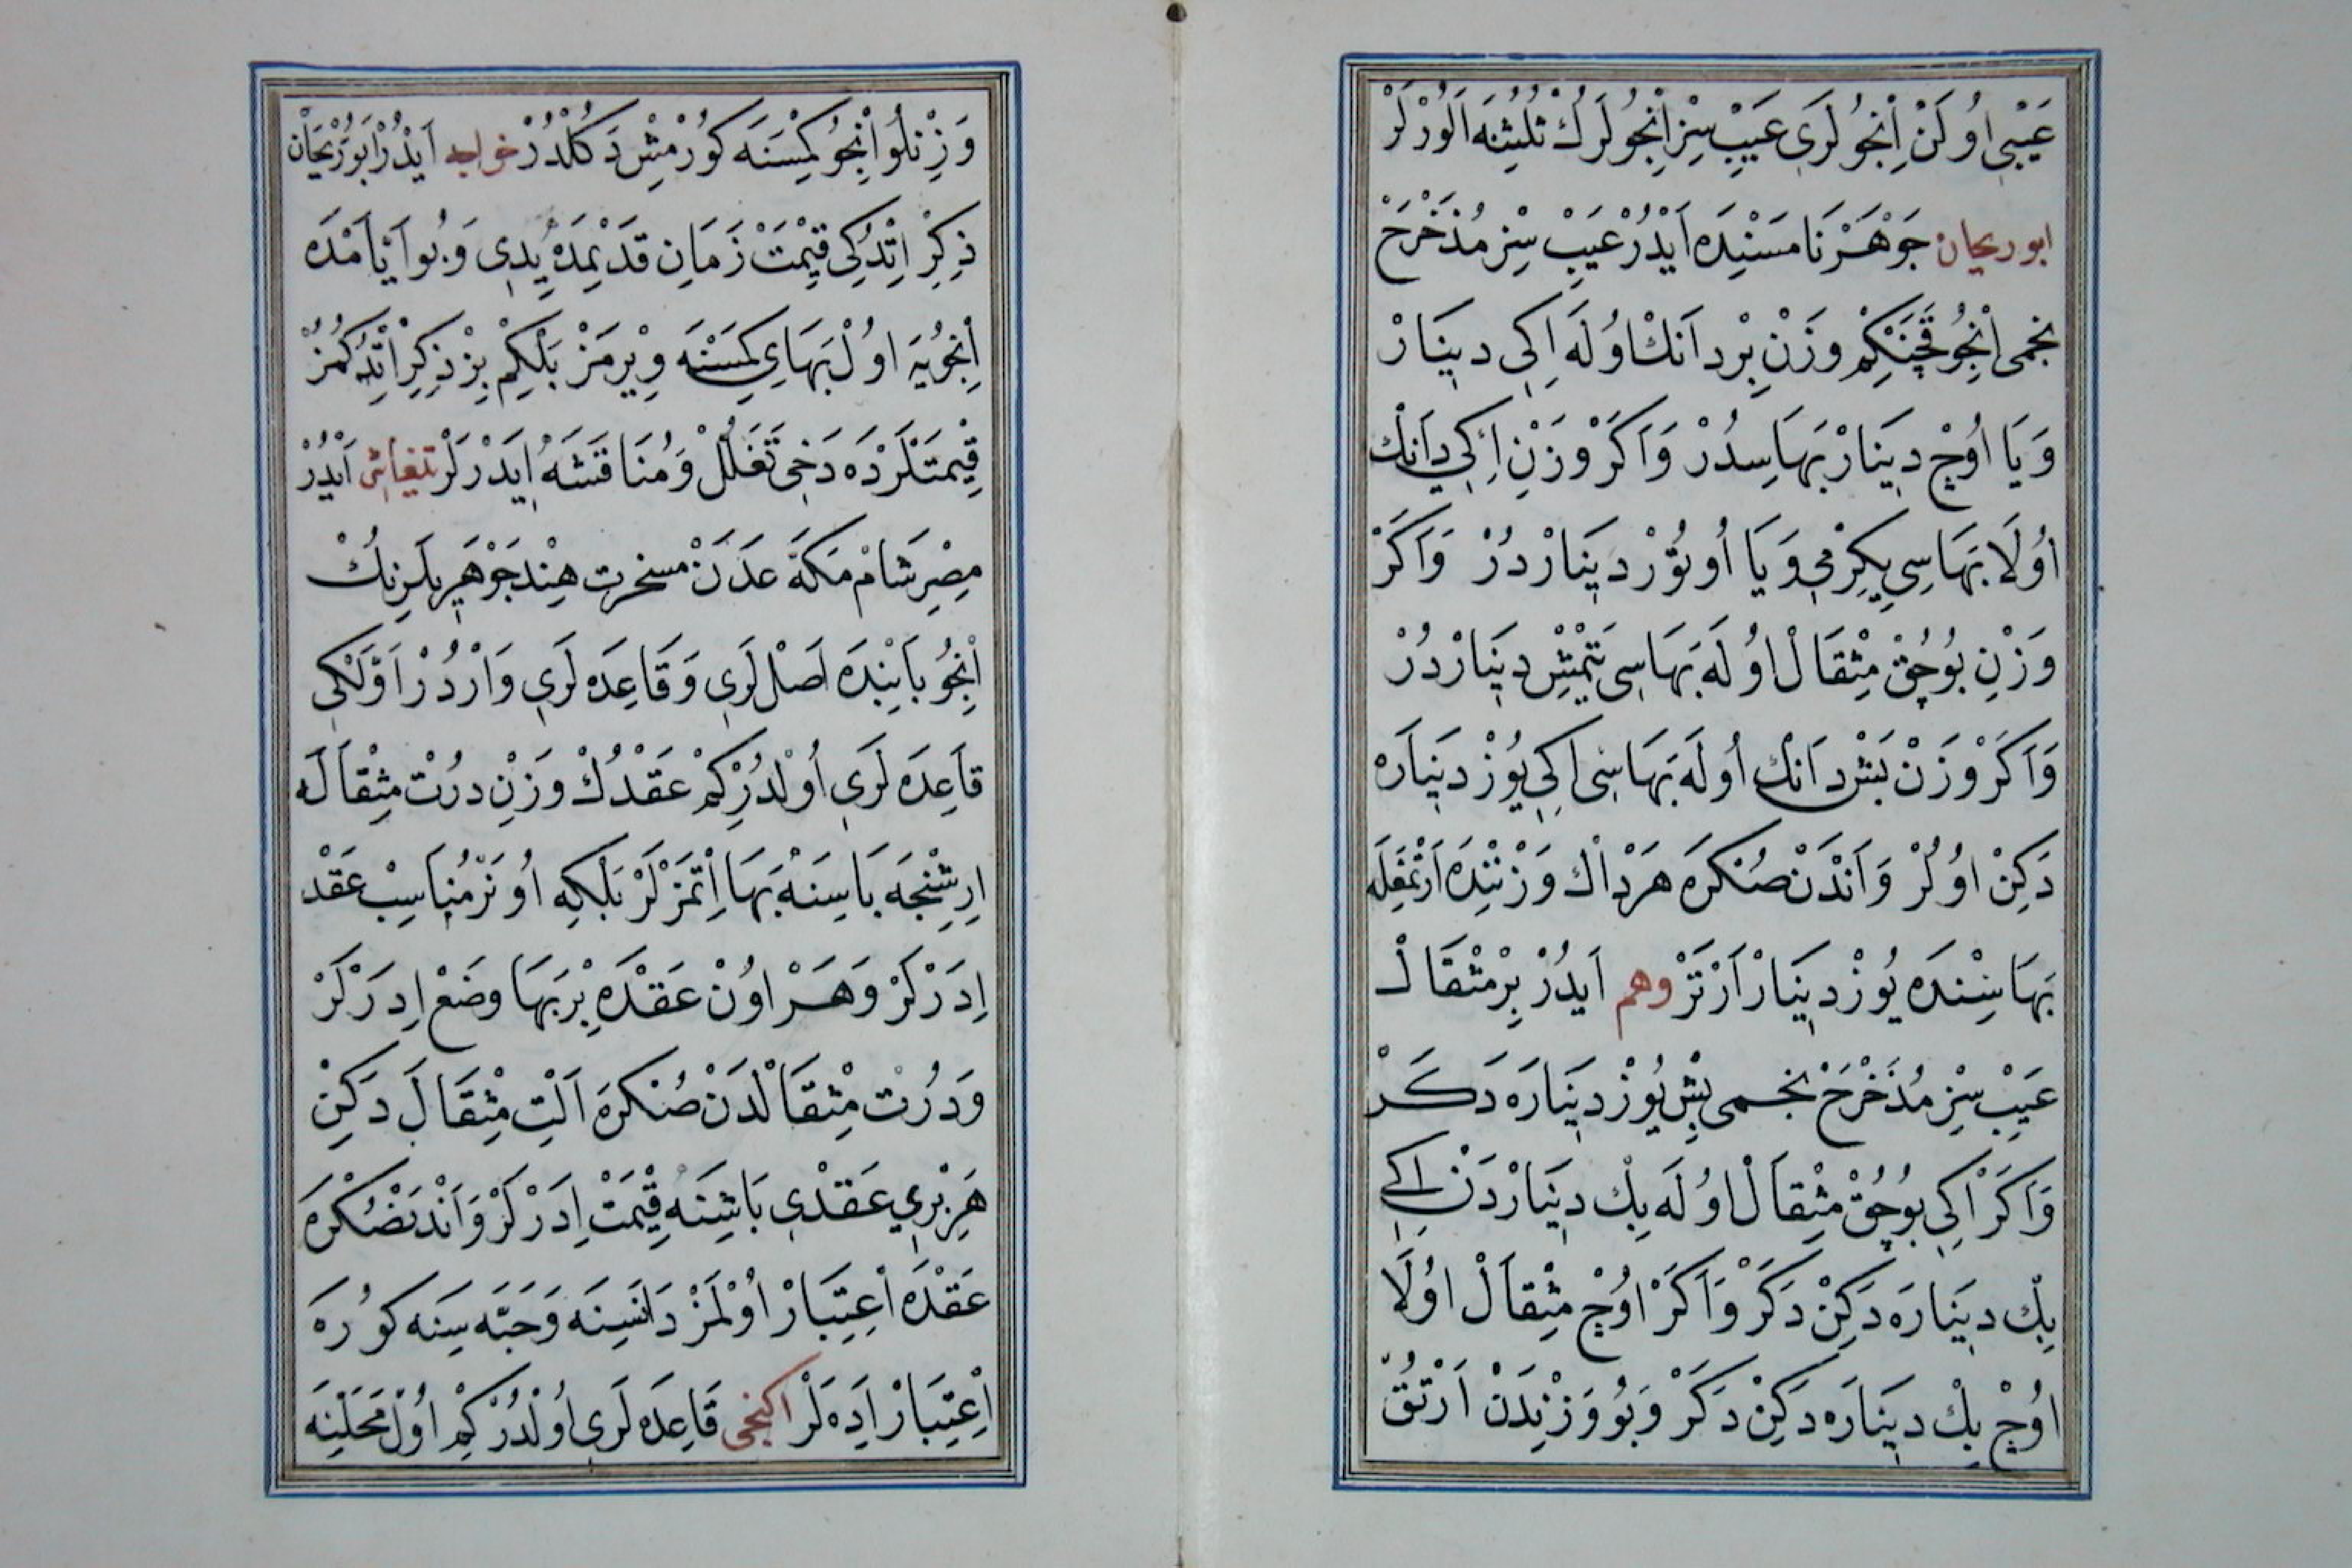 عَيْبِي اُولَنْ اِنْجُولَرِي عَيِبْ سِزْ اِنْجُولَرُكْ ثُلُثِنَه اَلُوْرْلَرْ
ابو ریحان جَوْهَرْنَامَسْنِدَه اَيْدُرْ عَيِبْ سِزْ مُدَخْرَجْ
نجمی اِنْجُو قَچَنْكِمْ وَزْنِ بِرْ دَانَكْ اُولَه اِكِي دِينَارْ
وَيَا اُوْچْ دِينَارْ بَهَاسِدُرْ وَاَكَرْ وَزْنِ اِكِي دَانَكْ
اُولَا بَهَاسِي يِكِرْمِي وَيَا اُوتُوْزْ دِينَارْدُرْ وَاَكَرْ
وَزْنِ بُوچُقْ مِثْقَالْ اُولَه بَهَاسِي يَتْمِشْ دِينَارْدُرْ
وَاَكَرْ وَزْنْ بَشْ دَانَكْ اُولَه بَهَاسِي اِكِي يُوزْ دِينَارَه
دَكِنْ اوُلُرْ وَاَنْدَنْ صُنْكَرَه هَرْدَاكْ وَزْنِنْدَه اَرْتْمَغِلَه
بَهَاسِنْدَه يُوزْ دِينَارْ اَرْتَرْ وهم اَيدُرْ بِرْ مِثْقَالْ
عَيِبْ سِزْ مُدَخْرَجْ نجمی بِشْ يُوزْ دِينَارَه دَكَرْ
وَاَكَرْ اِكِي بُوچُقْ مِثْقَالْ اوُلَه بِكْ دِينَارْدَنْ اِكِي
بِكْ دِينَارَه دَكِنْ دَكَرْ وَاَكَرْ اوُچْ مِثْقَالْ اوُلَا
اوُچْ بِكْ دِينَارَه دَكِنْ دَكَرْ وَبُو وَزْنِدَنْ اَرْتُقْ
وَزِنْلُو اِنْجُو كِمْسَنَه كُورْمِشْ دَكُلْدُرْ خواجه اَيْدُرْ اَبُورَيْحَانْ
ذِكِرْ اِتْدُكِي قِيْمَتْ زَمَانِ قَدْيمَدَه يِدِي وَبُو اَيَّامْدَه
اِنْجُويَه اوُلْ بَهَايِ كِمْسَنَه وِيرْمَزْ بَلْكِمْ بِزْ ذِكِرْ اِتْدُكُمُزْ
قِيمَتْلَرْدَه دَخِي تَعَلُّلْ وَمُنَاقَشَه اِيدَرْلَرْ تیفاشی اَيْدُرْ
مِصِرْ شَامْ مَكَّه عَدَنْ مسخرت هِنْد جَوْهَرِيلَرِنِكْ
اِنْجُو بَابِنْدَه اَصْلْلَرِي وَقَاعِدَه لَرِي وَارْدُرْ اَوَّلْكِي
قَاعِدَه لَرِي اُولْدُرْكِمْ عَقْدُكْ وَزْنِ دُرْتْ مِثْقَالَه
اِرِشِنْجَه بَاسِنَه بَهَا اِتْمَزْلَرْ بَلْكِه اُونَرْ مُنَاسِبْ عَقْدْ
اِدَرْلَرْ وَهَرْ اوُنْ عَقْدَه بِرْ بَهَا وَضَعْ اِدَرْلَرْ
وَدُرْتْ مِثْقَالْدَنْ صُنْكَرَه اَلْتِ مِثْقَالَ دَكِنْ
هَرْ بِرِي عَقْدِي بَاشِنَه قِيْمَتْ اِدَرْلَرْ وَاَنْدَنْصُنْكَرَه
عَقْدَه اِعِتِبَارْ اُوْلْمَزْ دَانَسِنَه وَحَبَّه سِنَه كُورَه
اِعِتِبَارْ اِدَه لَرْ اكنجی قَاعِدَه لَرِي اُولْدُرْ كِمْ اوُلْ مَحَلِّنَه